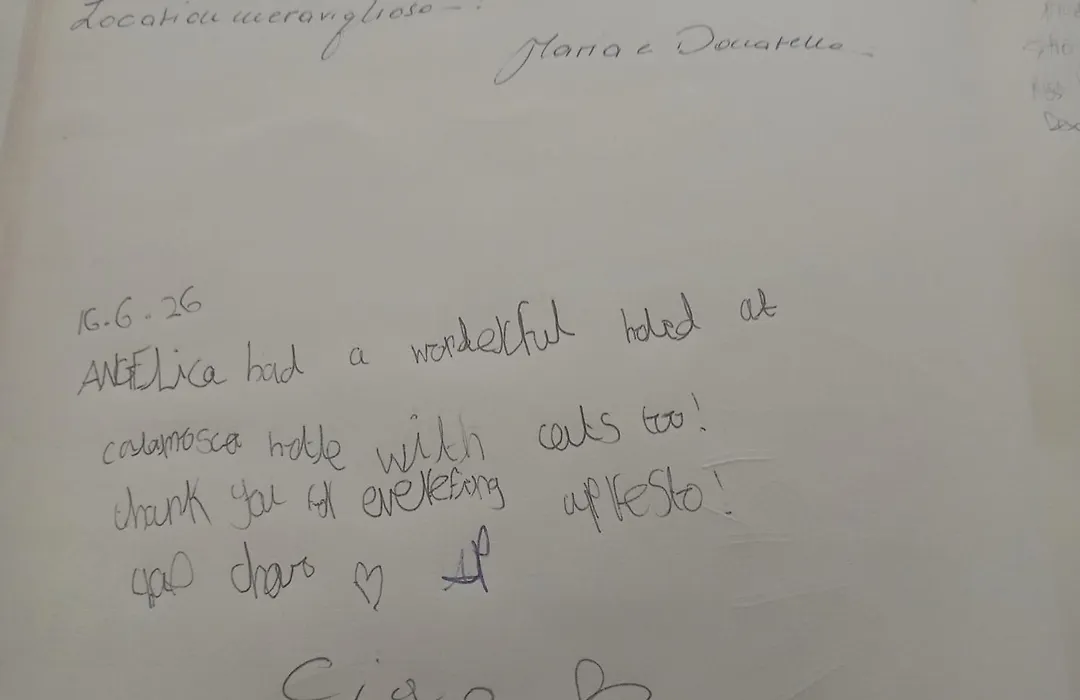 Location meraviglioso - !
Maria e Donatello
16.6.26
ANGELica had a wonderful holed at
calamosca hotle with cats too!
thank you for everefing apresto!
ciao ♡
Ciao